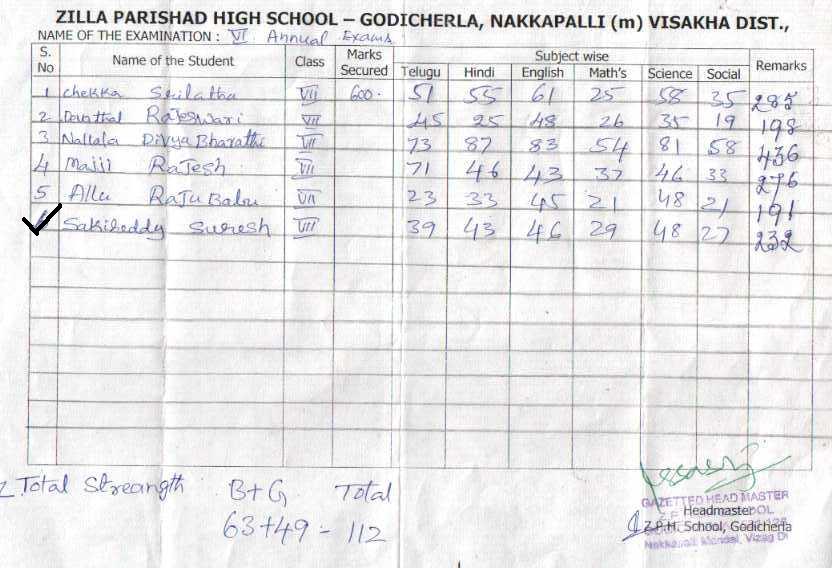 ZILLA PARISHAD HIGH SCHOOL – GODICHERLA, NAKKAPALLI (m) VISAKHA DIST.,
NAME OF THE EXAMINATION : VI Annual Exams.
S. No Name of the Student Class Marks Secured Subject wise Remarks
Telugu Hindi English Math's Science Social
1 chekka Srilatha VII 600. 51 55 61 25 58 35 285
2 Rajeswari VII 45 25 48 26 35 19 198
3 Nallala Divya Bharathi VII 73 87 83 54 81 58 436
4 Majji Rajesh VII 71 46 43 37 46 33 276
5 Allu Raju Babu VII 23 33 45 21 48 21 191
Sakireddy Suresh VII 39 43 46 29 48 27 232
Total Streangth B+G Total
63+49 = 112
GAZETTED HEAD MASTER
Headmaster
Z.P.H. School, Godicherla
Nakkapalli Mandal, Vizag Dt